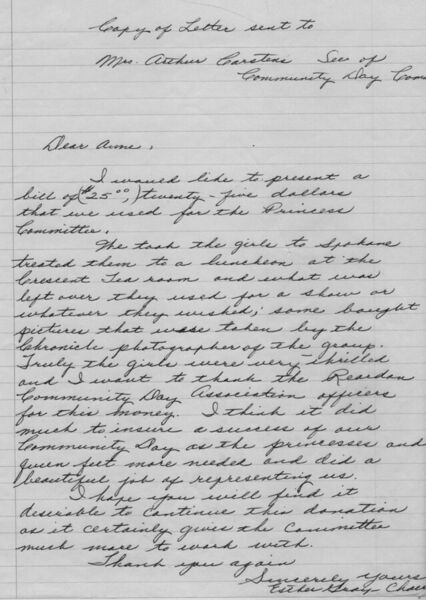 Copy of Letter sent to
Mrs. Arthur Carstens Sec of
Community Day Com
Dear Anne,
I would like to present a
bill of ($25.00,) twenty-five dollars
that we used for the Princess
Committee.
We took the girls to Spokane
treated them to a luncheon at the
Crescent Tea room and what was
left over they used for a show or
whatever they wished; some bought
pictures that wase taken by the
Chronicle photographer of the group.
Truly the girls were very thrilled
and I want to thank the Reardan
Community Day Association officers
for this money. I think it did
much to insure a success of our
Community Day as the princesses and
queen felt more needed and did a
beautiful job of representing us.
I hope you will find it
desirable to continue this donation
as it certainly gives the Committee
much more to work with.
Thank you again
Sincerely yours
Esther Gray Chair